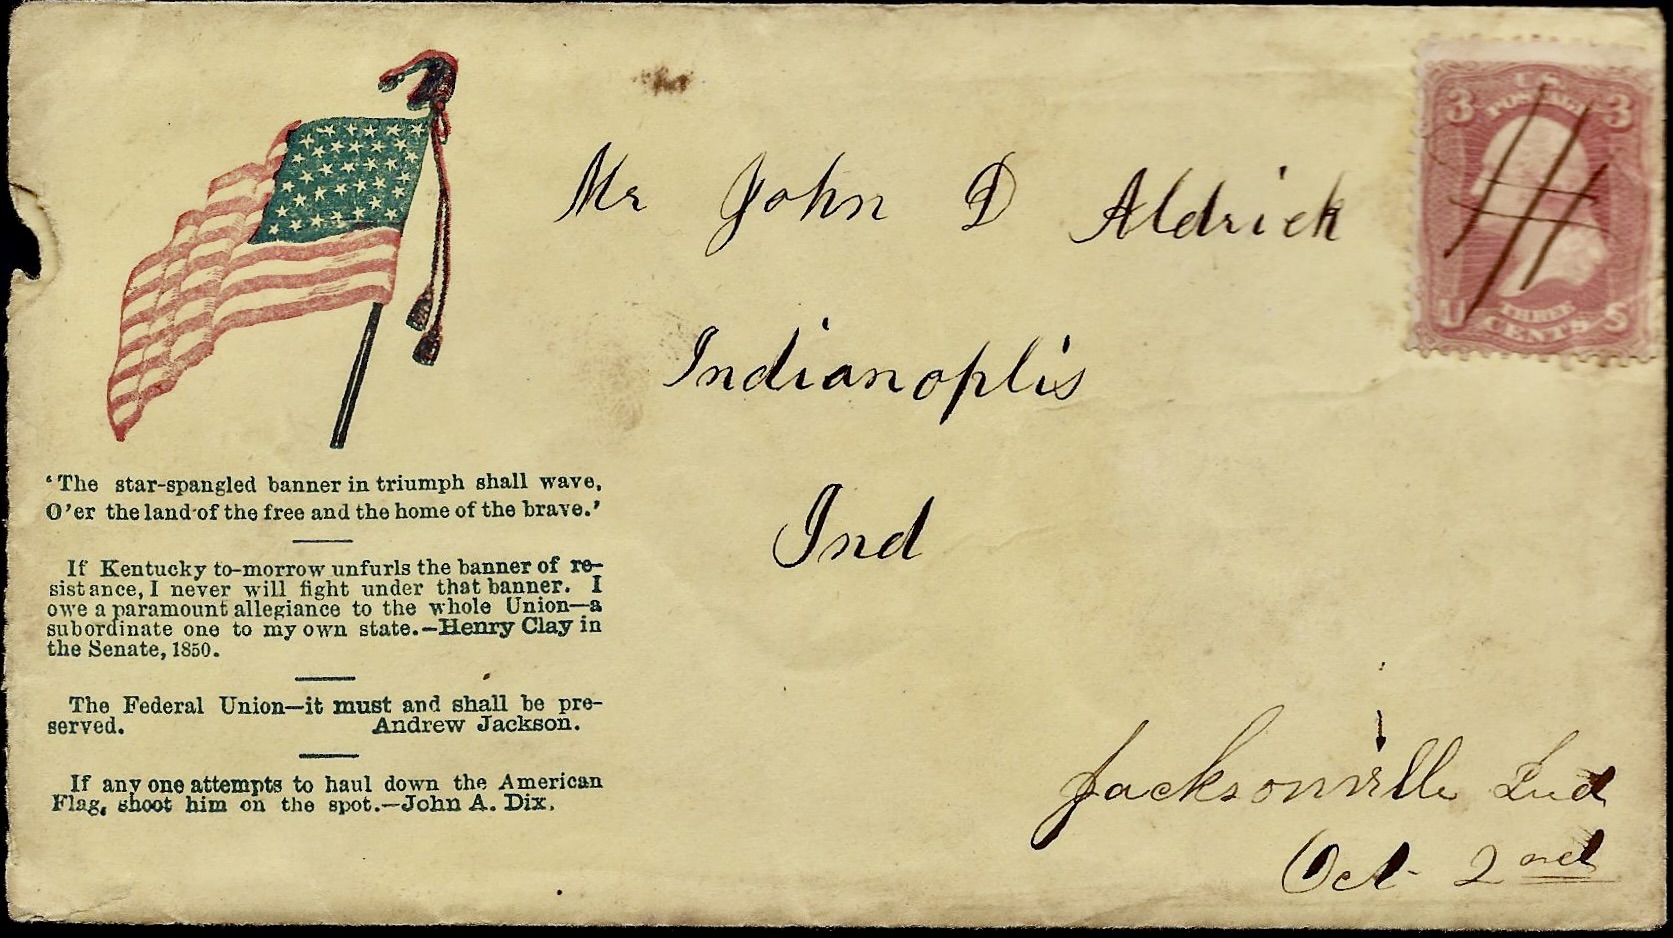 U.S.
POSTAGE
3 3
U S
THREE
CENTS
Mr John D Aldrick
Indianoplis
Ind
'The star-spangled banner in triumph shall wave,
O'er the land of the free and the home of the brave.'
If Kentucky to-morrow unfurls the banner of re-
sistance, I never will fight under that banner. I
owe a paramount allegiance to the whole Union—a
subordinate one to my own state.—Henry Clay in
the Senate, 1850.
The Federal Union—it must and shall be pre-
served. Andrew Jackson.
If any one attempts to haul down the American
Flag, shoot him on the spot.—John A. Dix.
Jacksonville Ind
Oct 2nd